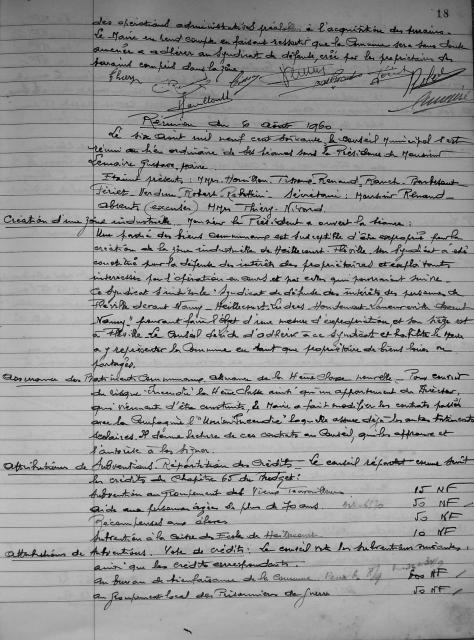 18
des opérations administratives préalab. à l'acquisition des terrains.
Le Maire en rend compte en faisant ressortir que la Commune sera sans doute
amenée à adhérer au Syndicat de défense, créé par les propriétaires des
terrains compris dans la zone.
Réunion du 6 Août 1960
Le six Août mil neuf cent soixante, le Conseil Municipal s'est
réuni au lieu ordinaire de ses séances sous la Présidence de Monsieur
Lemaire Gustave, Maire.
Etaient présents : MM. Renard
Férier Verdun Robert Secrétaire : Monsieur Renard
Absents (excusés) MM. Thiéry - Nivard.
Création d'une zone industrielle. Monsieur le Président a ouvert la séance :
Une partie des biens communaux est susceptible d'être expropriée pour la
création de la zone industrielle de Heillecourt Fléville. Un Syndicat a été
constitué pour la défense des intérêts des propriétaires et exploitants
intéressés par l'opération en cours et par celles qui pourraient suivre.
Ce Syndicat s'intitule "Syndicat de défense des intérêts des personnes de
Fléville devant Nancy - Heillecourt - Ludres Houdemont - Laneuveville devant
Nancy" pouvant faire l'objet d'une mesure d'expropriation et son siège est
à Fléville. Le Conseil décide d'adhérer à ce Syndicat et habilite le Maire
à y représenter la Commune en tant que propriétaire de biens
partagés.
Assurance des Bâtiments Communaux, de la 4ème Classe nouvelle - Pour couvrir
du risque Incendie la 4ème Classe ainsi qu'un appartement du Directeur
qui viennent d'être construits, le Maire a fait modifier les contrats passés
avec la Compagnie l'"Union Incendie" laquelle assure déjà les autres bâtiments
scolaires. Il donne lecture de ces contrats au Conseil, qui les approuve et
l'autorise à les signer.
Attributions de Subventions. Répartition des Crédits - Le Conseil répartit comme suit
les crédits du Chapitre 65 du Budget :
Subvention au Groupement des Vieux Travailleurs 15 NF
Aide aux personnes âgées de plus de 70 ans. 50 NF
Récompenses aux élèves 50 NF
Subvention à la Caisse des Ecoles de Heillecourt 10 NF
Attributions de Subventions. Vote de crédits : Le Conseil vote les subventions suivantes,
ainsi que les crédits correspondants.
au bureau de bienfaisance de la Commune 500 NF
au groupement local des Prisonniers de guerre 50 NF